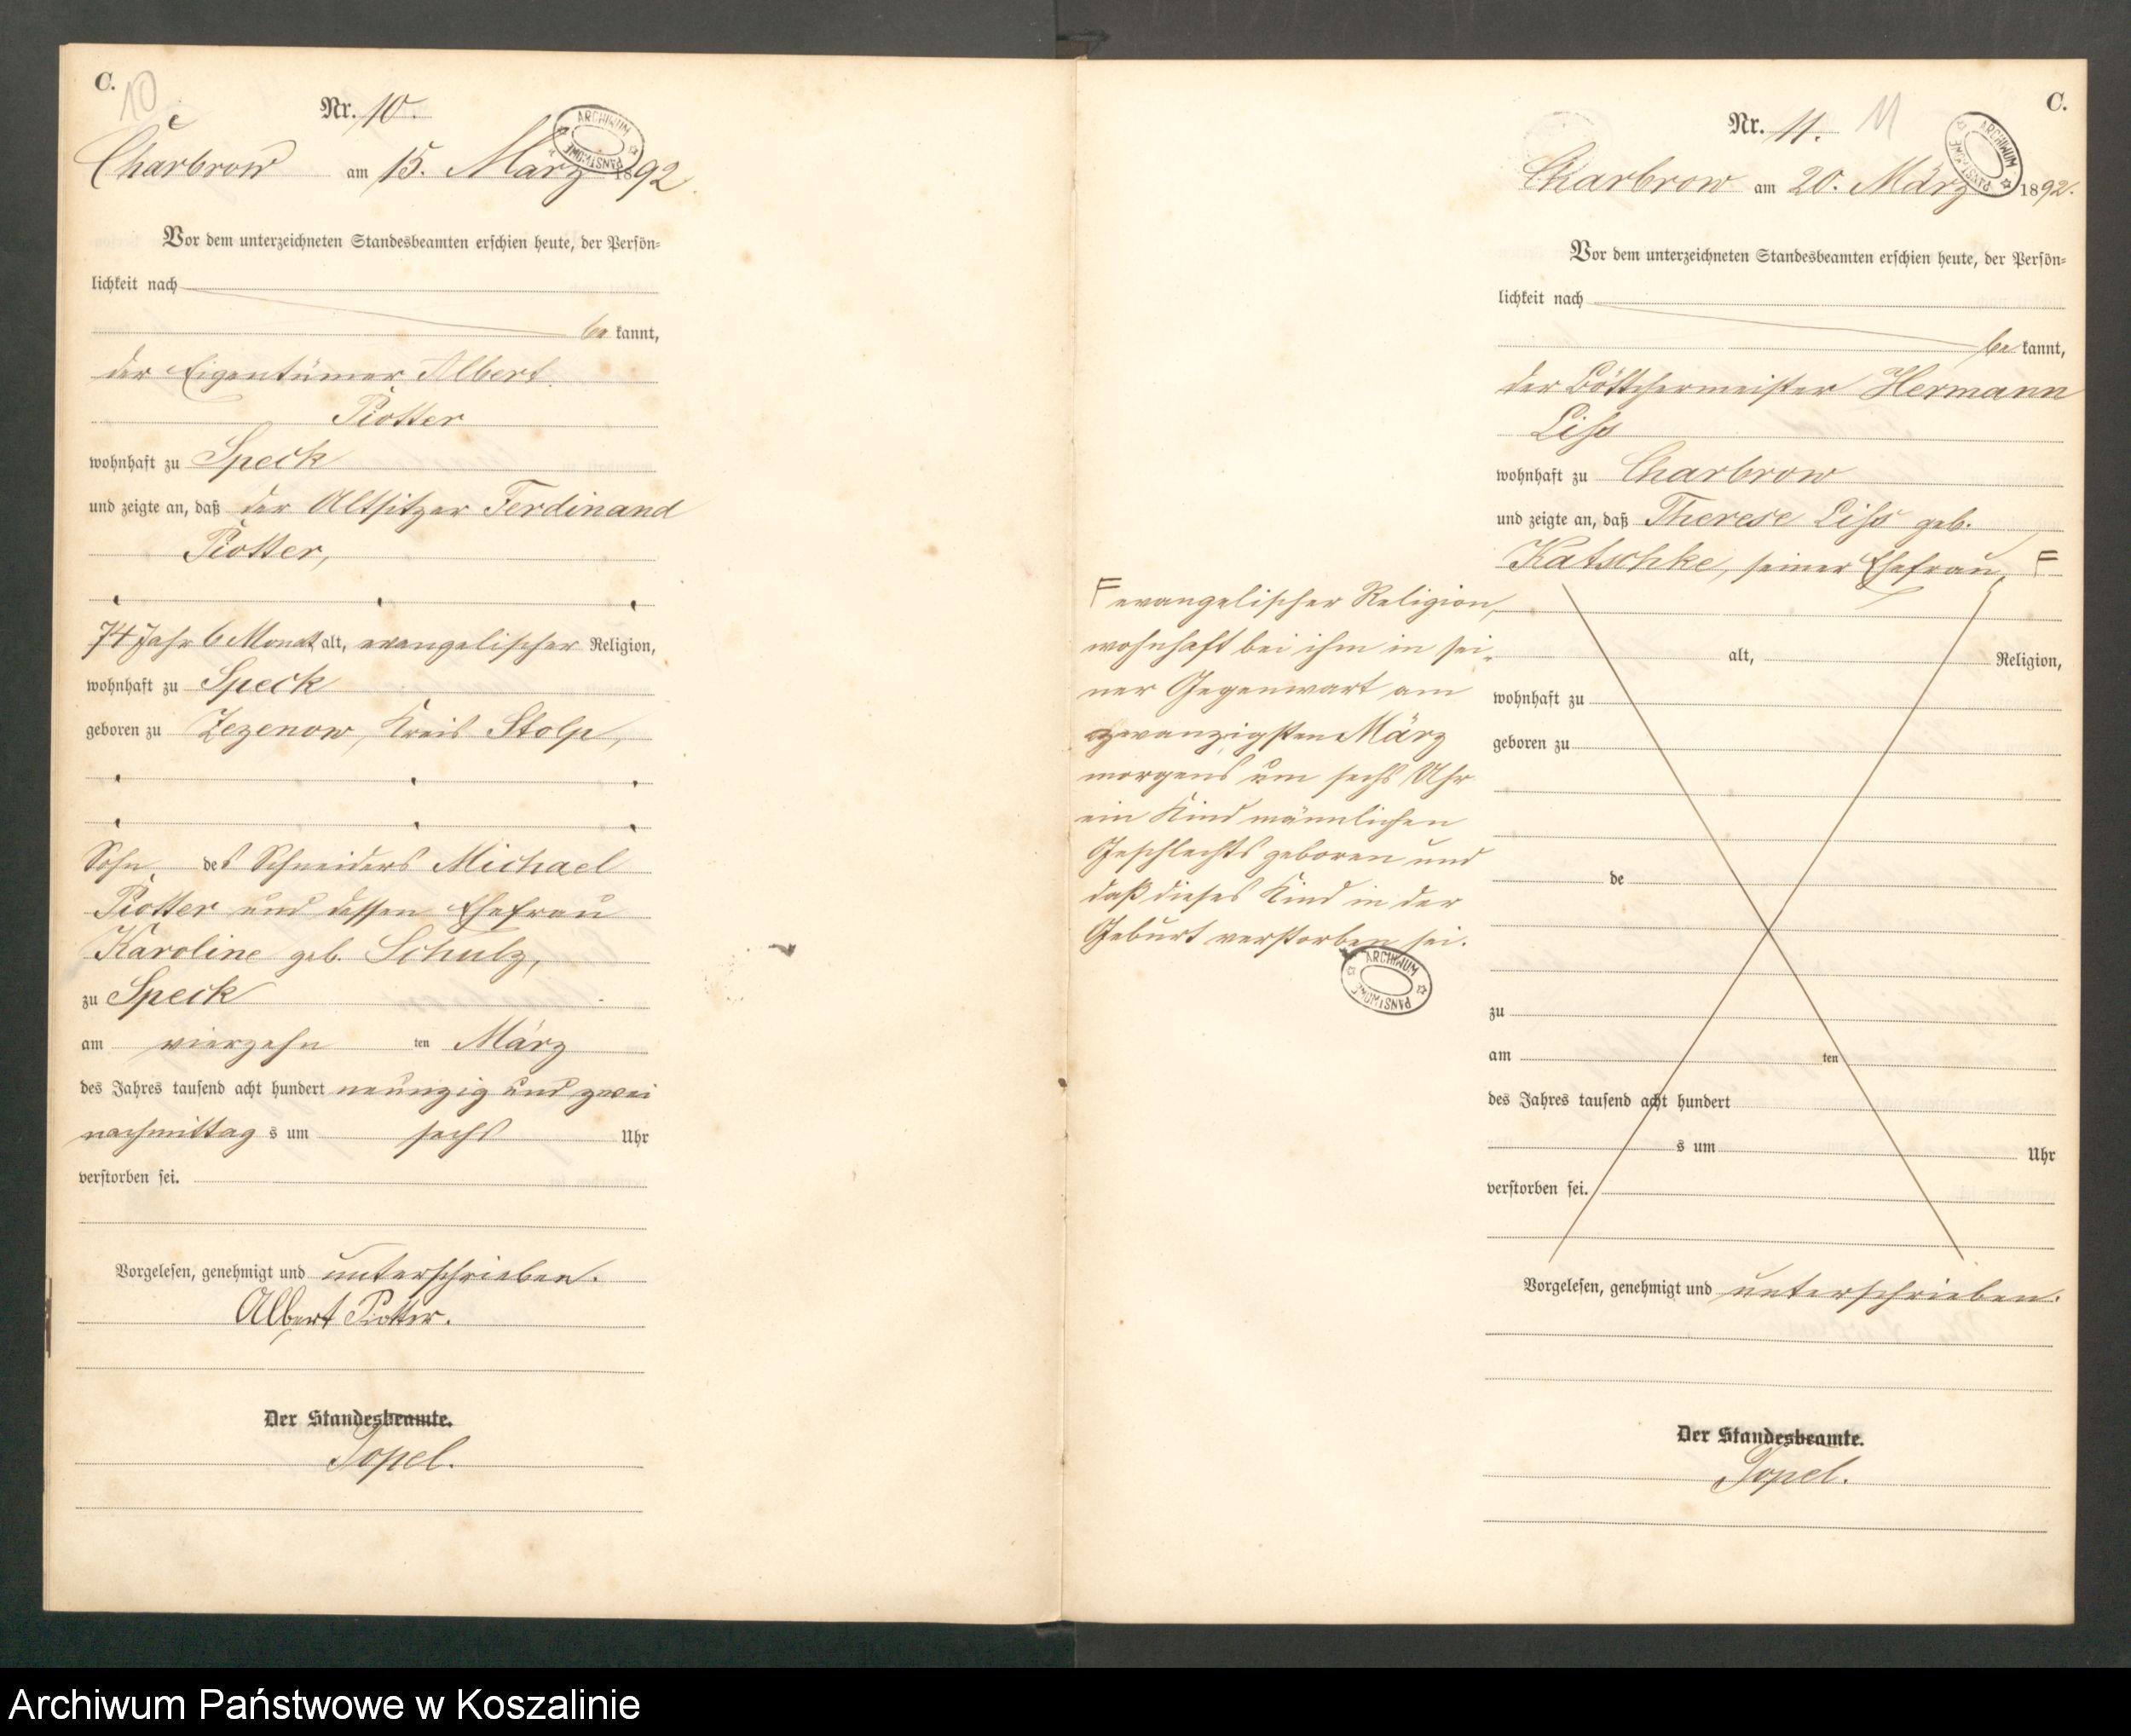 C.
10
Nr. 10.
Charbrow am 15. März 1892.
ARCHIWUM PAŃSTWOWE
Vor dem unterzeichneten Standesbeamten erschien heute, der Persön=
lichkeit nach
be kannt,
der Eigentümer Albert
Piotter
wohnhaft zu Speck
und zeigte an, daß der Altsitzer Ferdinand
Piotter,
74 Jahr 6 Monat alt, evangelischer Religion,
wohnhaft zu Speck
geboren zu Zezenow, Kreis Stolp,
Sohn des Schneiders Michael
Piotter und dessen Ehefrau
Karoline geb. Schulz,
zu Speck
am vierzehn ten März
des Jahres tausend acht hundert neunzig und zwei
nachmittag s um sechs Uhr
verstorben sei.
Vorgelesen, genehmigt und unterschrieben.
Albert Piotter.
Der Standesbeamte.
Topel.
C.
Nr. 11. 11
Charbrow am 20. März 1892.
ARCHIWUM PAŃSTWOWE
Vor dem unterzeichneten Standesbeamten erschien heute, der Persön=
lichkeit nach
be kannt,
der Böttchermeister Hermann
Liss
wohnhaft zu Charbrow
und zeigte an, daß Therese Liss geb.
Katschke, seiner Ehefrau, F
F evangelischer Religion,
wohnhaft bei ihm in sei=
ner Gegenwart am
zwanzigsten März
morgens um sechs Uhr
ein Kind männlichen
Geschlechts geboren und
daß dieses Kind in der
Geburt verstorben sei.
ARCHIWUM PAŃSTWOWE
alt, Religion,
wohnhaft zu
geboren zu
de
zu
am ten
des Jahres tausend acht hundert
s um Uhr
verstorben sei.
Vorgelesen, genehmigt und unterschrieben.
Der Standesbeamte.
Topel.
Archiwum Państwowe w Koszalinie